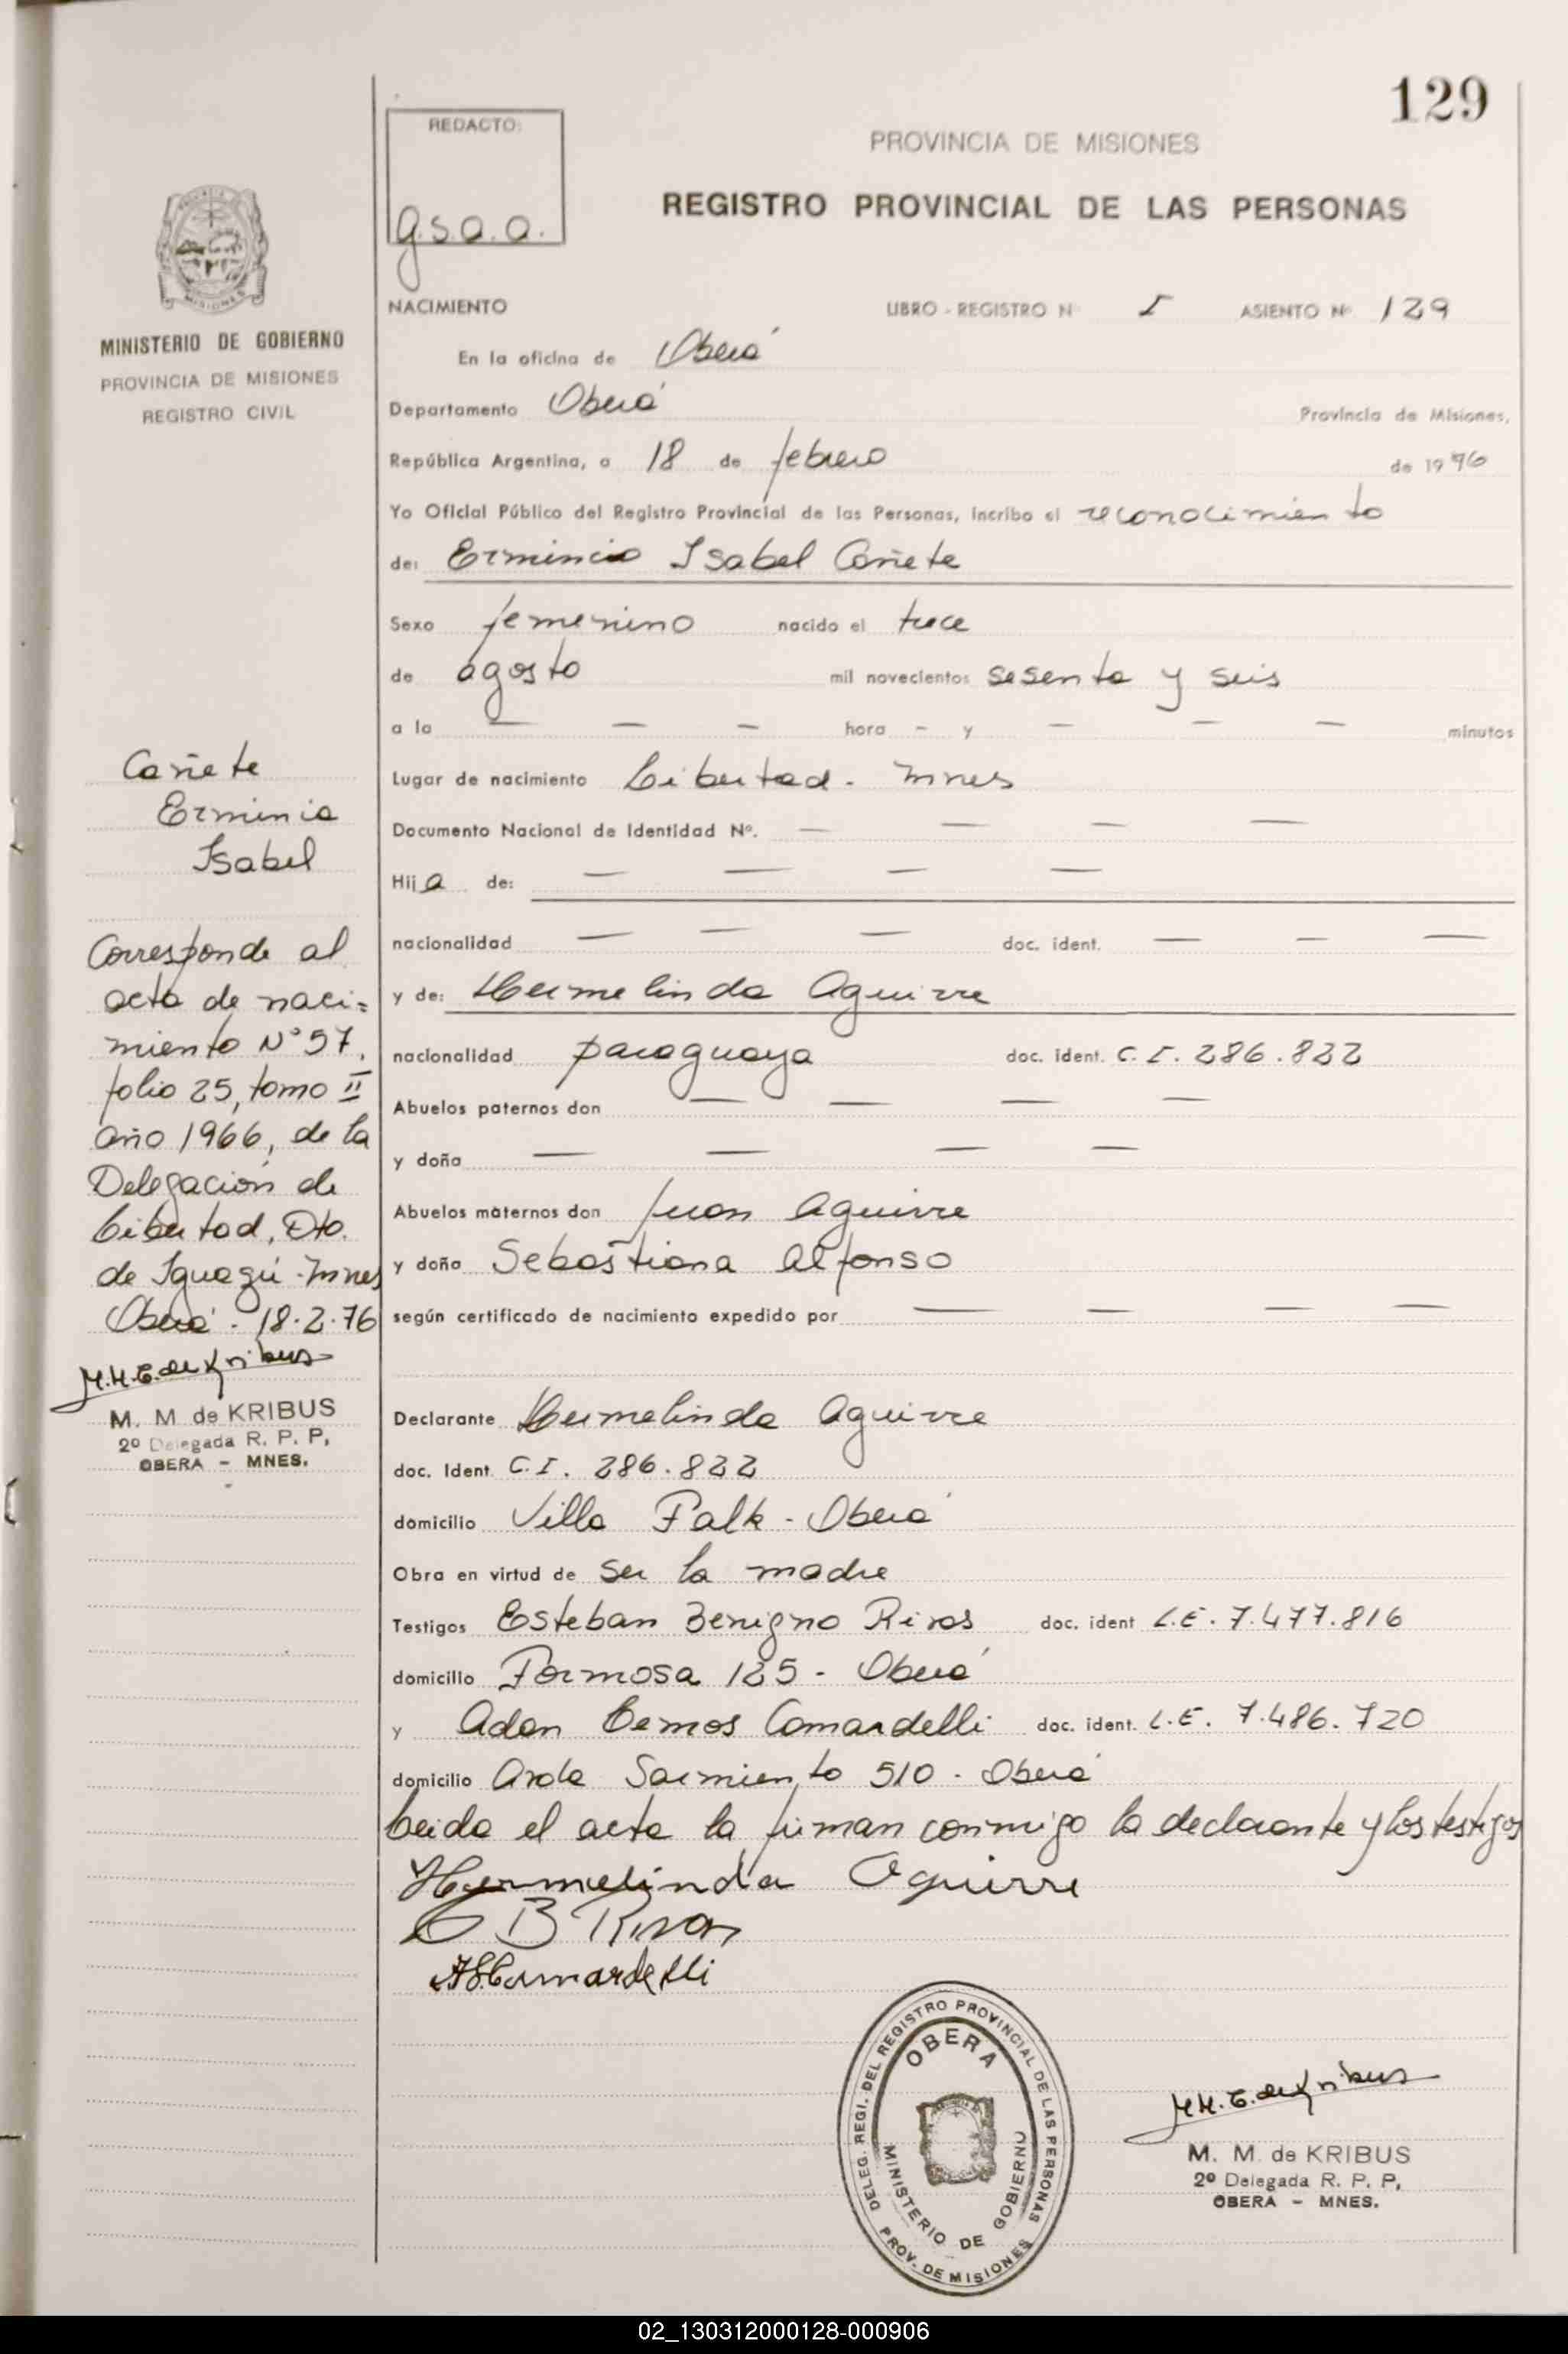 129
REDACTO:
g.s.a.a.
PROVINCIA DE MISIONES
REGISTRO PROVINCIAL DE LAS PERSONAS
MINISTERIO DE GOBIERNO
PROVINCIA DE MISIONES
REGISTRO CIVIL
NACIMIENTO LIBRO - REGISTRO Nº I ASIENTO Nº 129
En la oficina de Oberá
Departamento Oberá Provincia de Misiones,
República Argentina, a 18 de febrero de 1976
Yo Oficial Público del Registro Provincial de las Personas, incribo el reconocimiento
de: Erminia Isabel Cañete
Sexo femenino nacido el trece
de agosto mil novecientos sesenta y seis
a la — — — hora - y — — — minutos
Lugar de nacimiento Libertad - Mnes
Documento Nacional de Identidad Nº. — — — —
Hija de: — — — —
nacionalidad — — — doc. ident. — — —
y de: Hermelinda Aguirre
nacionalidad paraguaya doc. ident. C.I. 286.822
Abuelos paternos don — — — —
y doña — — — —
Abuelos maternos don Juan Aguirre
y doña Sebastiana Alfonso
según certificado de nacimiento expedido por — — — —
Declarante Hermelinda Aguirre
doc. Ident. C.I. 286.822
domicilio Villa Falk - Oberá
Obra en virtud de ser la madre
Testigos Esteban Benigno Rivas doc. ident L.E. 7.477.816
domicilio Formosa 125 - Oberá
y Adan Lemos Comardelli doc. ident. L.E. 7.486.720
domicilio Avda Sarmiento 510 - Oberá
Leida el acta la firman conmigo la declarante y los testigos
Hermelinda Aguirre
E B Rivas
Cañete
Erminia
Isabel
Corresponde al
acta de naci=
miento Nº 57,
folio 25, tomo II
año 1966, de la
Delegación de
Libertad, Dto.
de Iguazú - Mnes
Oberá - 18.2.76
M. M. de KRIBUS
2º Delegada R. P. P,
OBERA - MNES.
DELEG. REGI. DEL REGISTRO PROVINCIAL DE LAS PERSONAS
OBERA
MINISTERIO DE GOBIERNO
PROV. DE MISIONES
M. M. de KRIBUS
2º Delegada R. P. P,
OBERA - MNES.
02_130312000128-000906